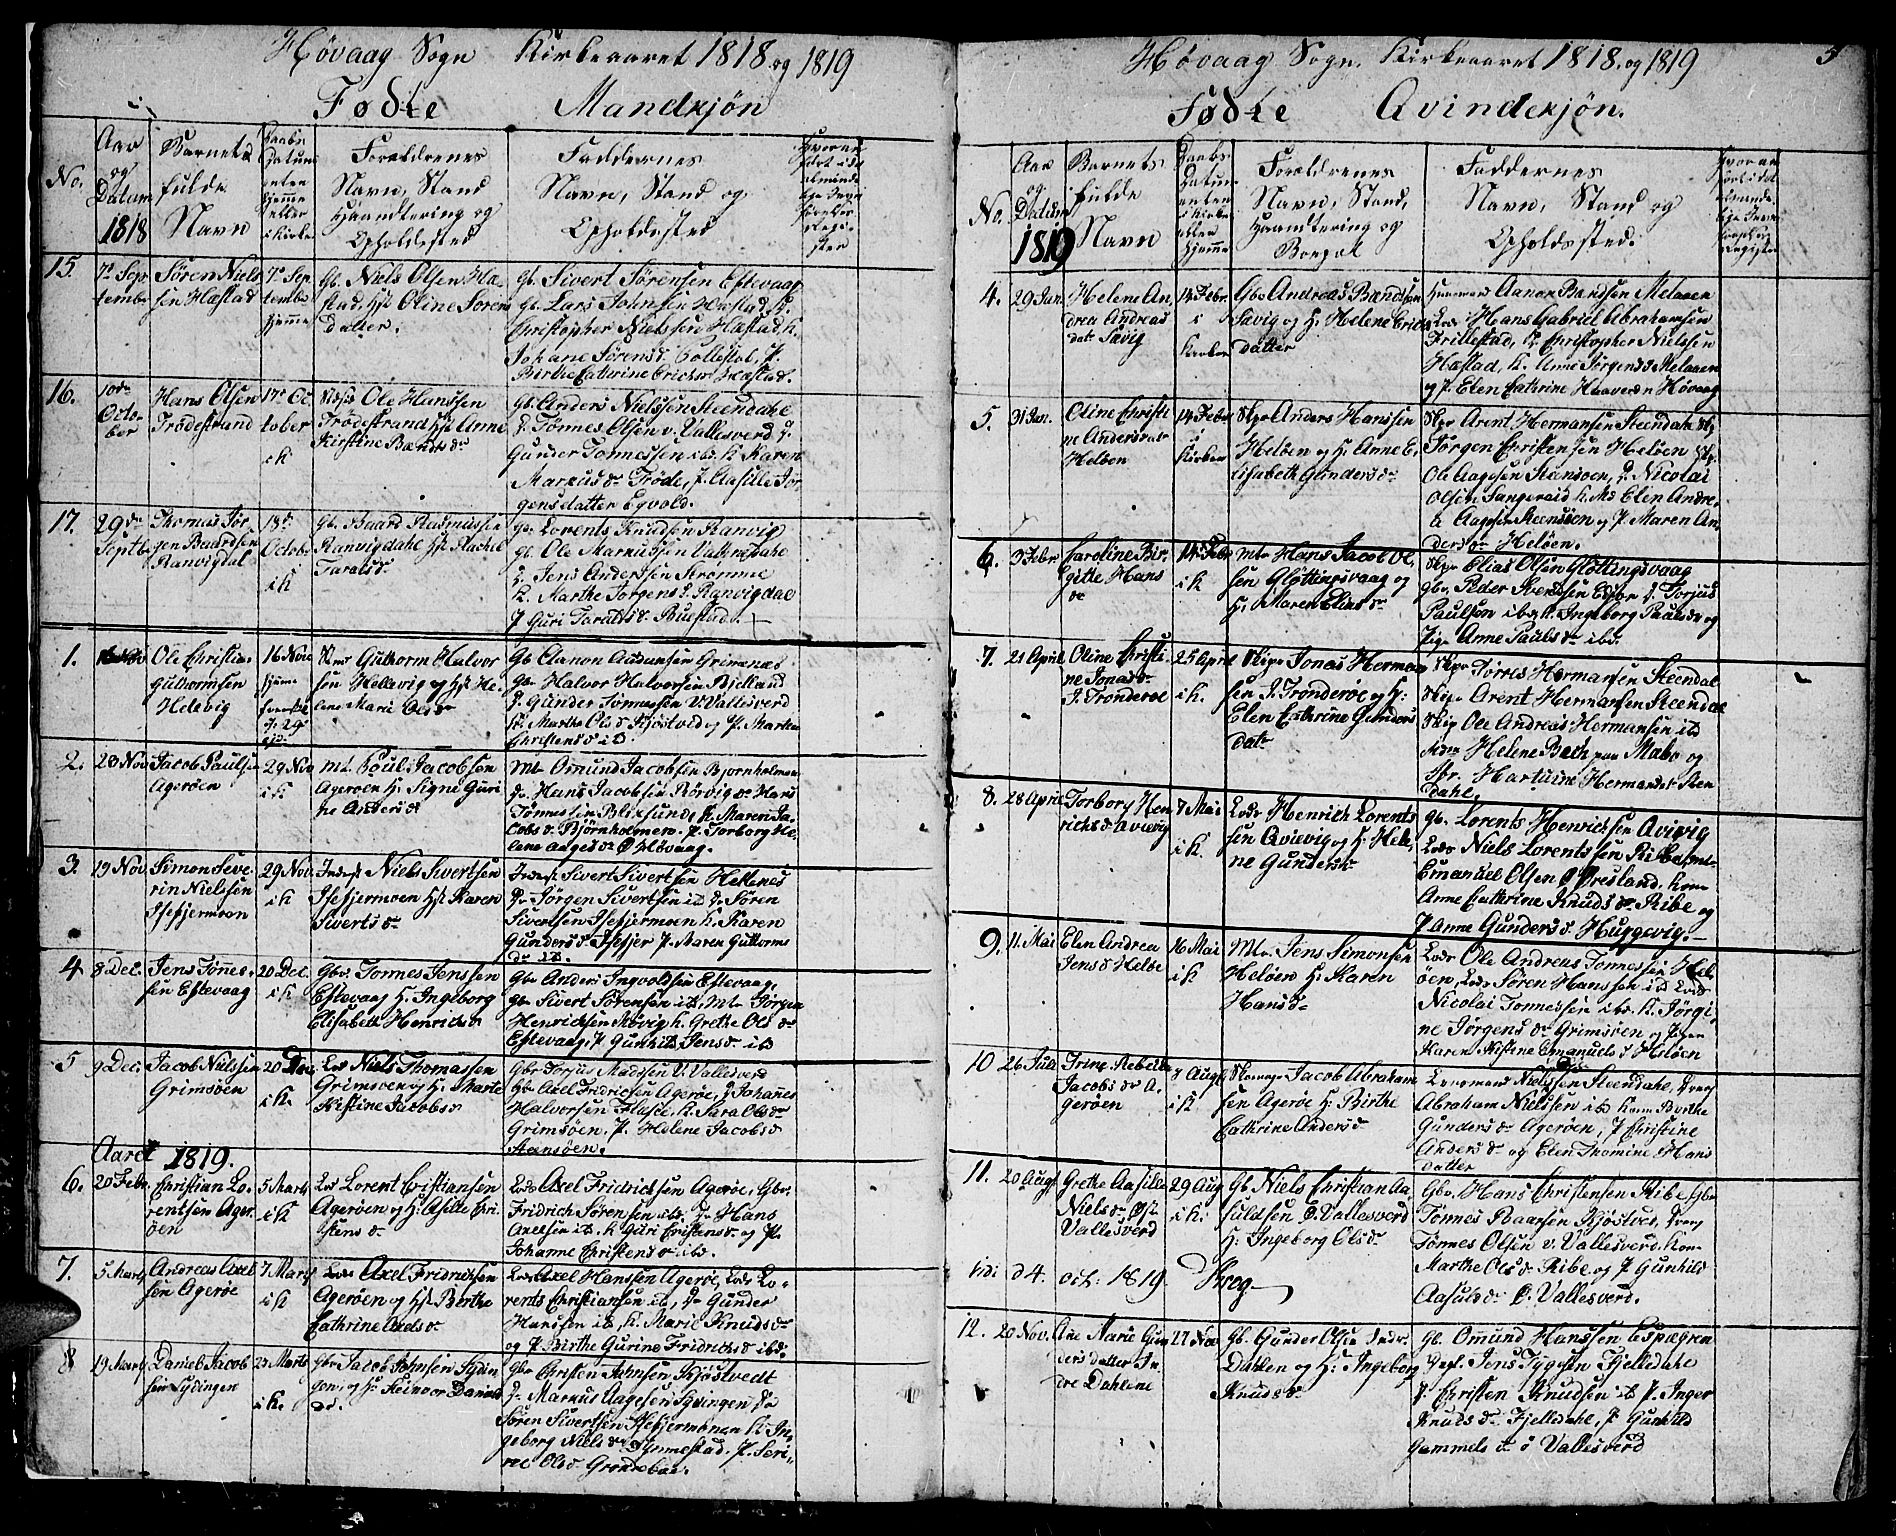 Høvaag Sogn Kirkeaaret 1818 og 1819
Fødte Mandkjøn
No.
Aar
og
Datum
1818
Barnets
fulde
Navn
Daabs
Datum
enten
hjemme
eller
i Kirke
Foraldrenes
Navn, Stand
Haandtering og
Opholdssted
Faddernes
Navn, Stand og
Opholdssted
15. 7de Sep
tembr
Søren Niels
sen Hæstad
7de Sep
tember
hjemme
Gb. Niels Olsen Hæ
stad, Hst Oline Soren
datter.
Gb. Sivert Sørensen Estevaag
Gb. Lars Johnsen Hæstad, K.
Christopher Nielssen Hæstad, K.
Johane Sørensd. Collestøl, P.
Birthe Cathrine Ericksd. Hæstad.
16. 10de
Octo
ber
Hans Olsen
Trødestrand
17de Oc
tober
i K
Ole Hanssen
Trødestrand Hst Anne
Kirstine Bændsdr
Gb. Anders Nielssen Steendahl
D. Tønnes Olsen v. Vallesverd D.
Gunder Tonnessen ibd. K. Karen
Markusdr Trøde, P. Aasille Jør
gensdatter Egvold.
17. 29de
Septb
Thomas Jør
gen Baardsen
Ranvigdal
18de
Octobr
i K
Gb. Baard Rasmussen
Ranvigdahl Hst Rachel
Taralsd.
Gb. Lorents Knudsen Ranvig
Gb. Ole Markussen Vatnedahl
D. Jens Anderssen Strømme
K. Marthe Jorgensd. Ranvigdal
P Guri Taraldsd. Buestad.
1. Ole Christia
Guttormsen
Helevig
16 Nov
hjemme
Guttorm Halvor
sen Hellevig og Hst He
lene Marie Olsdr
Gb Aanon Audunsen Grimenes
Gbr Halvor Halvorsen Bjelland
D. Gunder Tønnessen V. Vallesverd
K. Marthe Olsd. Kjøstved og P. Marten
Christensd ibd.
2. 28 Nov
Jacob Paulsen
Agerøen
29 Nov
i K
Mt. Poul Jacobsen
Agerøen H. Signe Guri
ne Andersd
Mt. Omund Jacobsen Bjornholmen
D. Hans Jacobsen Rørvig D. Hans
Tønnessen Blixsund, K. Maren Ja
cobsd. Bjørnholmen, P. Torborg He
lene Aagesdr Ø Høvaag.
3. 19 Nov
Simon Seve
rin Nielsen
Isefjermoen
29 Nov
i K
Inderst Niels Sivertsen
Isefjermoen Hst Karen
Sivertsd.
Inderst Sivert Sivertsen Hellenes
D. Jørgen Sivertsen ibd D. Søren
Sivertsen Isefjermoen K. Karen
Gundersd. Isefjer P. Maren Guttorms
dr ibd.
4 8 Dec.
Jens Tønes
sen Estevaag
20 Dec.
i K
Gbr. Tonnes Jenssen
Estevaag H. Ingeborg
Elisabeth Henricksd
Gbr Anders Ingvoldsen Estevaag,
Gbr Sivert Sørensen ibd, Mt. Jørgen
Henricksen Møvig K. Grethe Olsdr
Estevaag, P. Gunhild Jensd. ibd
5 9 Dec.
Jacob Nielssen
Grimsøen
20 Dec
i K.
Lods Niels Thomassen
Grimsøen og H. Marte
Kistine Jacobsd
Gbr Torjus Madssen V. Vallesverd
Gbr Axel Fridricsen Agerøe, D Johannes
Halvorsen Flasø, K. Sara Olsdr
Grimsøen, P. Helene Jacobsd
Hansøen.
Aaret 1819.
6. 20 Febr.
Christian Lo
rentsen Ager
øen
5 Marty
i K
Lods Lorent Cristiansen
Agerøen og H. Asille Cri
stensd.
Lods Axel Fridricksen Agerøe, Gbr.
Fridrich Sørensen ibd. D. Hans
Axelsen ibd. K. Guri Cristensd. og P.
Johanne Christensd. ibd.
7. 5 Marty
Andreas Axel
sen Agerøe
7 Marty
i K
Lods Axel Fridricksen
Agerøen og Hst Berthe
Cathrine Axelsdr
Lods Axel Hanssen Agerøe, Lods Lo
rents Christiansen ibd, D. Gunder
Hanssen ibd, K. Marie Knudsdr
og P. Birthe Gurine Fridricksd ibd.
8 19 Marty
Daniel Jacob
sen Tydingen
25 Marts
i K.
Gbr Jacob Johnsen Tydin
gen, og H. Steinvor Daniels
dr.
Gbr Christen Johnsen Kjøstvedt
D. Markus Aagesen Tydingen Dr
Søren Sivertsen Isefjermonen K In
geborg Nielsdr Tømmestad. P. Seri
ne Olsd. Grondeboe.
Høvaag Sogn. Kirkeaaret 1818. og 1819 5
Fødte Qvindekjøn.
No.
Aar
og
Datum
1819
Barnets
fulde
Navn
Daabs
Datum
enten
i Kirke
eller
hjemme
Foraldrenes
Navn, Stand,
Haandtering og
Bopæl
Faddernes
Navn, Stand og
Opholdssted.
4. 29 Jan.
Helene An
drea Andreas
datr Savig
14 Febr.
i
Kirken
Gbr Andreas Bændtsen
Savig og H. Helene Ericks
datter
Aanon Bændsen Melaaen
Lods Hans Gabriel Abrahamsen
Trillestad, D. Christopher Nielssen
Hastad, K. Anne Jørgensd. Melaaen
og P. Elen Cathrine Haavorsdr Høvaag
5. 31 Jan.
Oline Christi
ne Andersdatr
Heløen
14 Febr
i
Kirken
Skpr Anders Hanssen
Heløen og H. Anne E,
lisabeth Gundersdr
Skpr Arent Hermansen Steendahl Sk
Jørgen Christensen Heløen Sk.
Ole Aagesen Steensøen, D. Nicolai
Olsen K. Md Elen Andre,
a Aagesdr Steensøen og P. Maren An
dersdr Heløen.
6. 3 Febr
Caroline Bir,
gitte Hans
dr
14 Febr
i K
Mtr Hans Jacob Ol
sen Gløttingsvaag og
H. Maren Eliasdr
Skpr Elias Olsen Gløttingsvaag
Gbr. Peder Svendsen Ed D. Torjus
Paulsen ibd K. Ingeborg Paulsdr og
Pige Anne Paulsdr ibd.
7. 21 April
Oline Christi
ne Jonasdr
I. Tronderøe
25 April
i K.
Skipr Jonas Herman
sen I. Tronderøe og H:
Elen Cathrine Gunders
datr
Skpr Torris Hermansen Steendal
Skpr Arent Hermanssen Steendal
Skip Ole Andreas Hermansen ibd
Mdm Helene Bach paa Mabø og
Jfr. Hartvine Hermansdr Steen
dahl.
8. 28 April
Torborg Hen
richsd Aviewig
7 Mai
i K.
Lods Henrich Lorents
sen Avievig og H. Hele,
ne Gundersdr
Gb. Lorents Henrichsen Avivig
Lods Niels Lorentssen Ribe
Emanuel Olsen Ø Øresland, Kone
Anne Cathrine Knudsdr Ribe og
P. Anne Gundersd Huggevig.
9. 11. Mai
Elen Andrea
Jensd Heløe
16 Mai
i K
Mtr. Jens Simonsen
Heløen H. Karen
Hansd.
Lods Ole Andreas Tonnessen Hel
øen, Lods Søren Hanssen ibd Lods
Nicolai Tonnessen ibd. K. Jørgi
ne Jørgensdr Grimsøen og Pigen
Karen Kistine Emanuelsd Heløen
10 26 Juli
Trine Rebecka
Jacobsdr A
gerøen
8 Augt
i K
Jacob Abraham
sen Agerøe H. Birthe
Cathrine Andersd
Nielssen Steendahl, Dreng
Abraham Nielssen ibd Kone Berthe
Gundersd Agerøen, P Christine
Andersdr og Elen Thomine Hans
datter
11. 20 Augt
Grethe Aasille
Nielsdr Øst
Vallesverd
29 Aug
i K.
Gb. Niels Christian Aa
suldsen Ø. Vallesverd
H. Ingeborg Olsdr
Gbr. Hans Christensen Ribe Gbr
Tønnes Baarsen Kjøstvet, Dreng
Tønnes Olsen v. Vallesverd, Kone
Marthe Olsdr Ribe og P Gunhild
Aasulsdr Ø. Vallesverd.
Vidi d 4. Oct: 1819. Krog
12. 20 Nov.
Ane Marie Gun
ders datter In
dre Dahlene
27 Nov
Gb. Gunder Olsen Indre
Dahlen og H: Ingeborg
Knudsdr
Gb. Omund Hanssen Espægren
Ungk. Jens Tygesen Fjelldahl
P. Christen Knudsen ibd P. Inger
Knudsdr Fjelldahl, P Gunhild
Gammelsdr ø Vallesverd